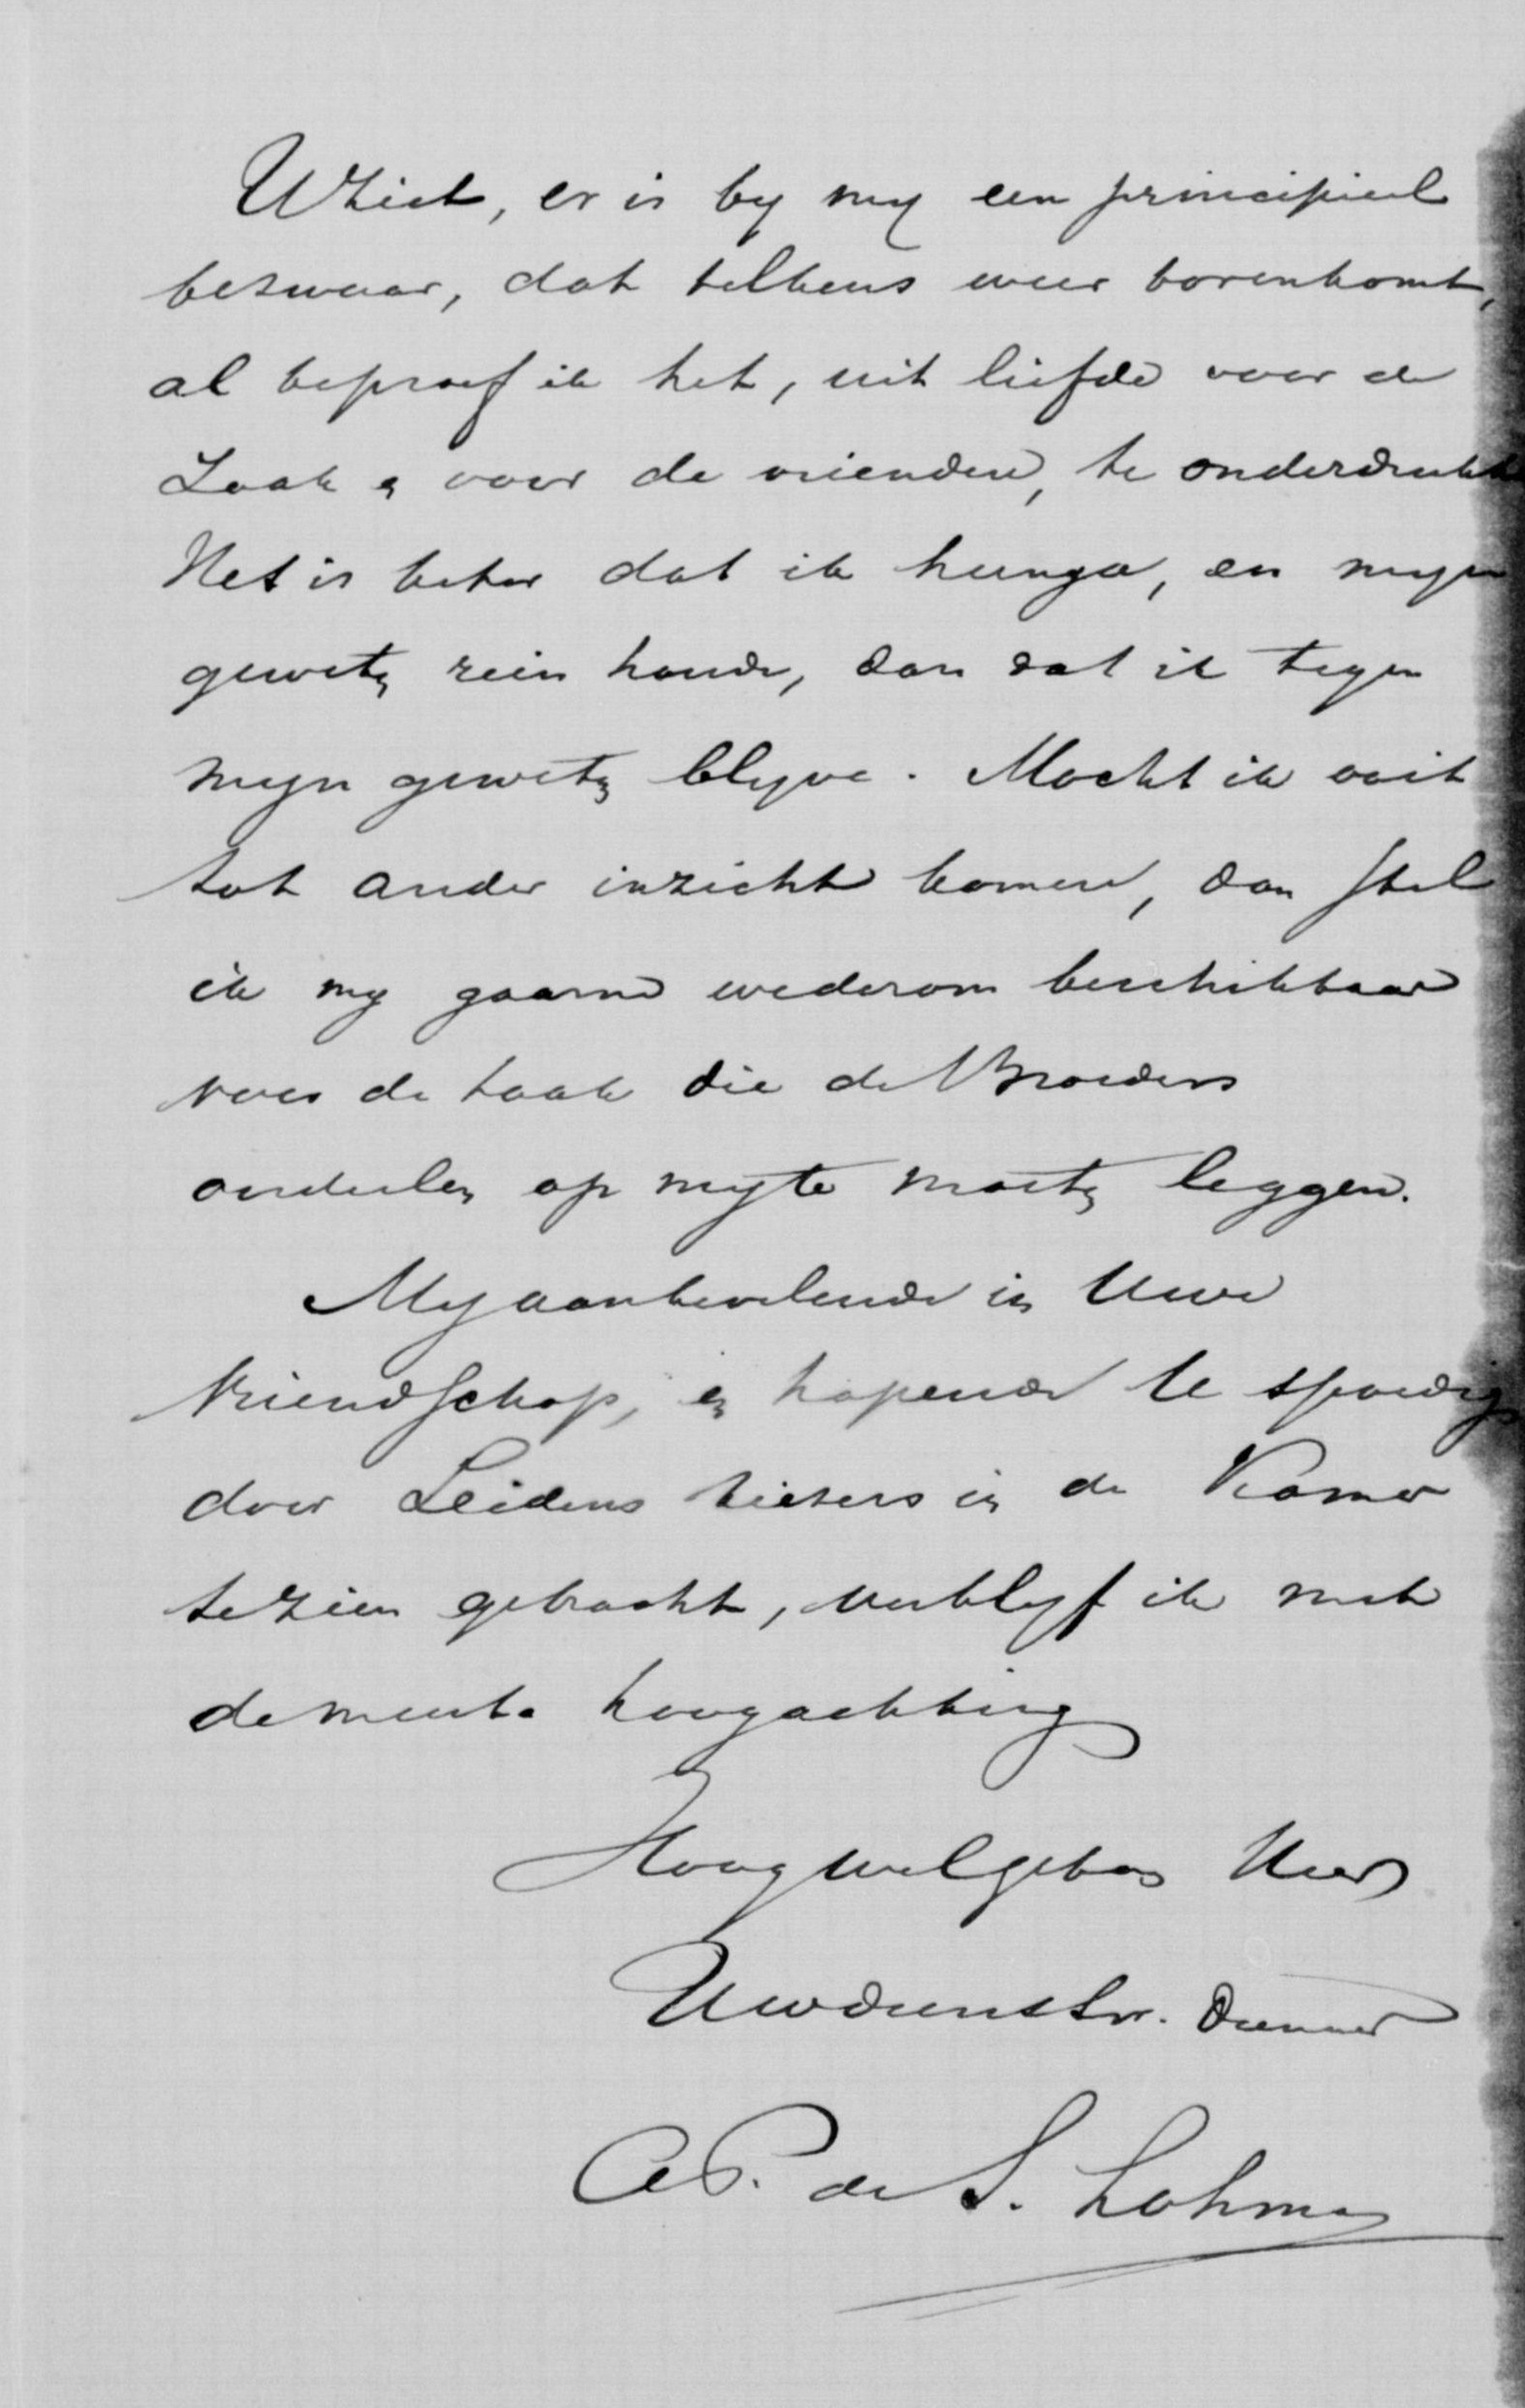 U ziet, er is by my een principieel
bezwaar, dat telkens weer bovenkomt,
al beproef ik het, uit liefde voor de
Zaak en voor de vrienden, te onderdrukken
Het is beter dat ik heenga, en mijn
geweten rein houde, dan dat ik tegen
mijn geweten blyve. Mocht ik ooit
tot ander inzicht komen, dan stel
ik my gaarne wederom beschikbaar
voor de taak die de Broeders
oordeelen op my te moeten leggen.
My aanbevelende in Uwe
Vriendschap, en hopende U spoedig
door Leidens kiezers in de Kamer
te zien gebracht, verblyf ik met
de meeste hoogachting
Hoogwelgeboren Heer
Uw dienstw. Dienaar
A F. de S. Lohman